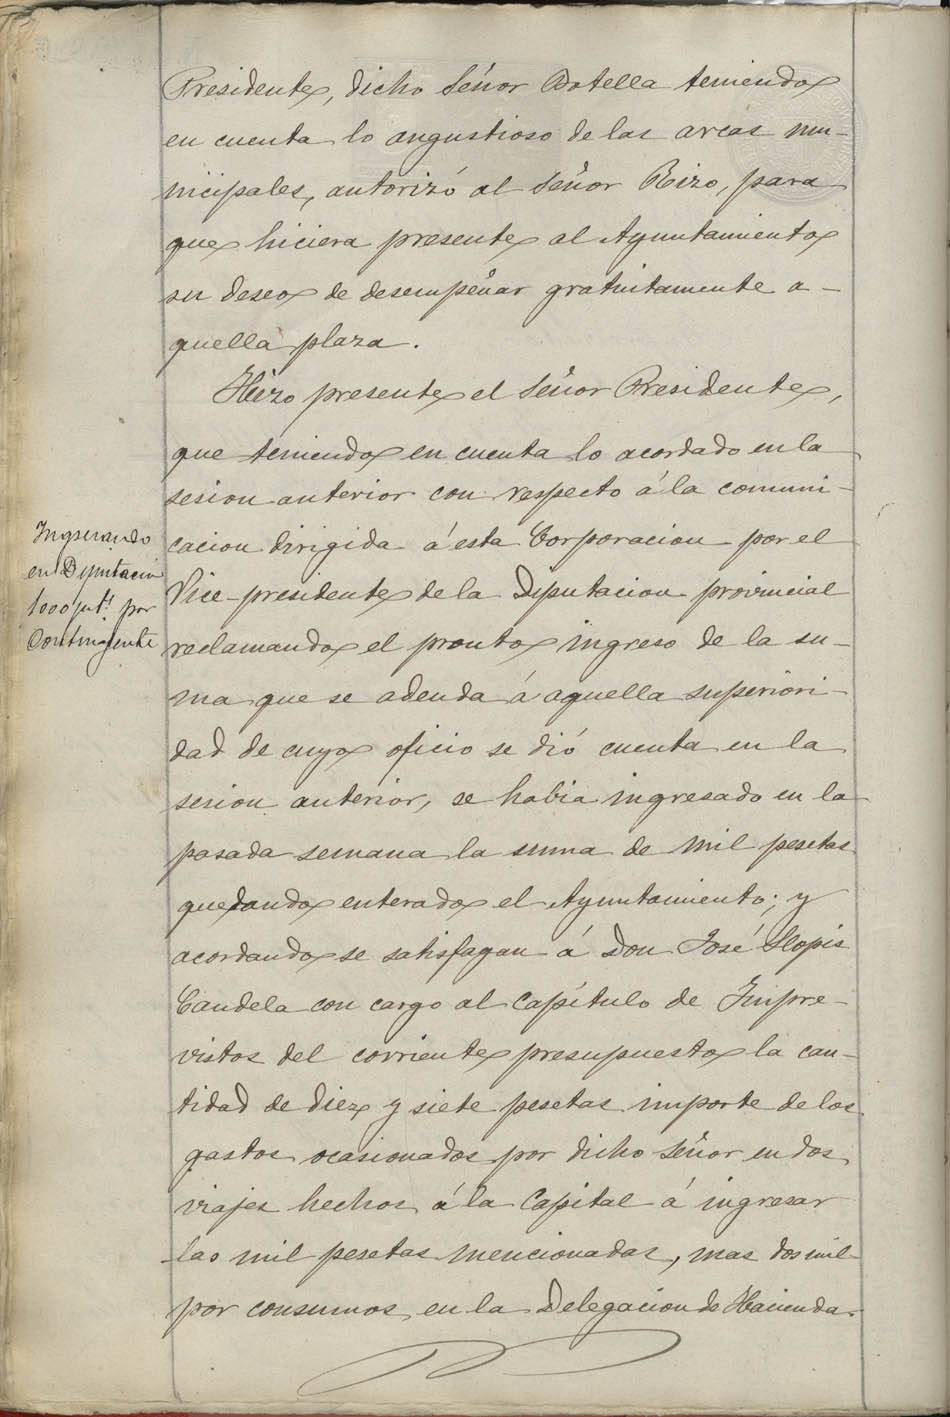 Presidente, dicho Señor Botella teniendo
en cuenta lo angustioso de las arcas mu-
nicipales, autorizó al Señor Rizo, para
que hiciera presente al Ayuntamiento
su deseo de desempeñar gratuitamente a-
quella plaza.
Hizo presente el Señor Presidente,
que teniendo en cuenta lo acordado en la
sesion anterior con respecto á la comuni-
cacion dirigida á esta Corporacion por el
Vice-presidente de la Diputacion provincial
reclamando el pronto ingreso de la su-
ma que se adeuda á aquella superiori-
dad de cuyo oficio se dió cuenta en la
sesion anterior, se habia ingresado en la
pasada semana la suma de mil pesetas
quedando enterado el Ayuntamiento; y
acordando se satisfagan á Don José Llopis
Candela con cargo al Capítulo de Impre-
vistos del corriente presupuesto la can-
tidad de diez y siete pesetas importe de los
gastos ocasionados por dicho Señor en dos
viajes hechos á la Capital á ingresar
las mil pesetas mencionadas, mas dos mil
por consumos en la Delegacion de Hacienda.
en Diputacion
1000 pts. por
Contingente